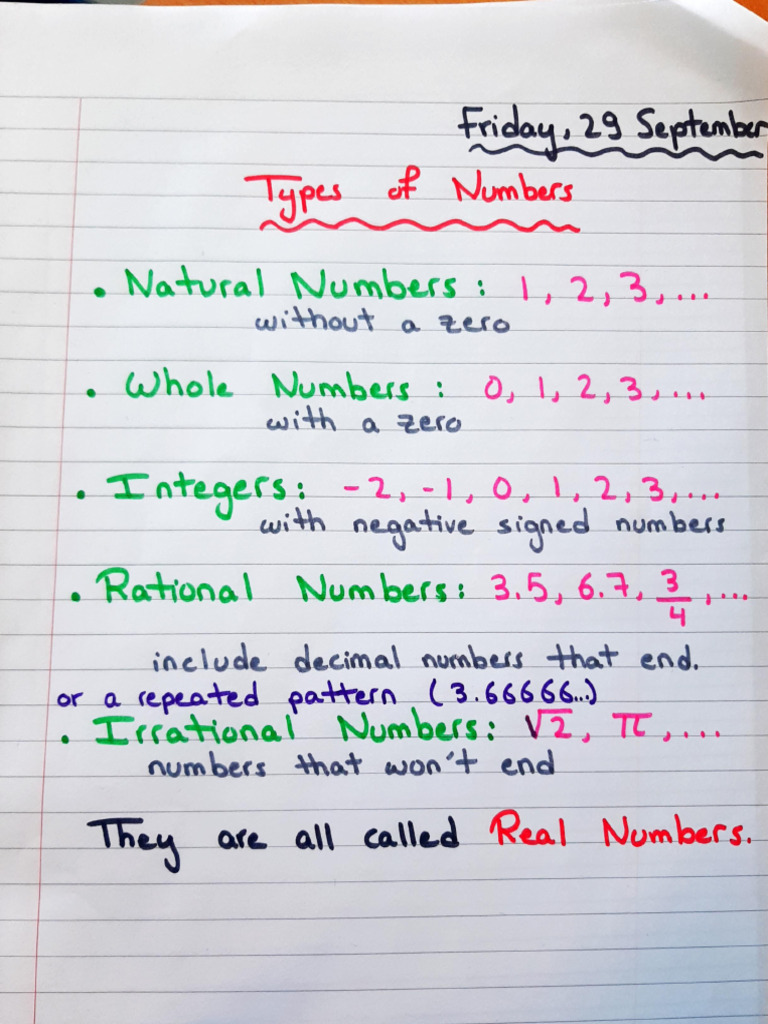 Friday, 29 September
Types of Numbers
• Natural Numbers: 1, 2, 3, ...
without a zero
• Whole Numbers : 0, 1, 2, 3, ...
with a zero
• Integers: -2, -1, 0, 1, 2, 3, ...
with negative signed numbers
• Rational Numbers: 3.5, 6.7, 3/4, ...
include decimal numbers that end.
or a repeated pattern (3.66666...)
• Irrational Numbers: √2, π, ...
numbers that won't end
They are all called Real Numbers.